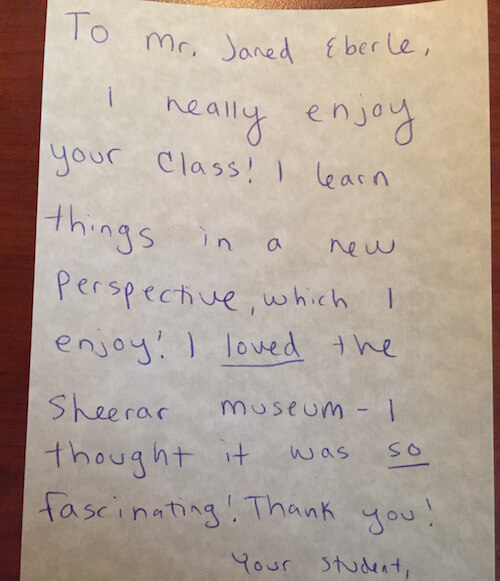 To Mr. Jared Eberle,
I really enjoy
your class! I learn
things in a new
perspective, which I
enjoy! I loved the
Sheerar museum - I
thought it was so
fascinating! Thank you!
Your student,